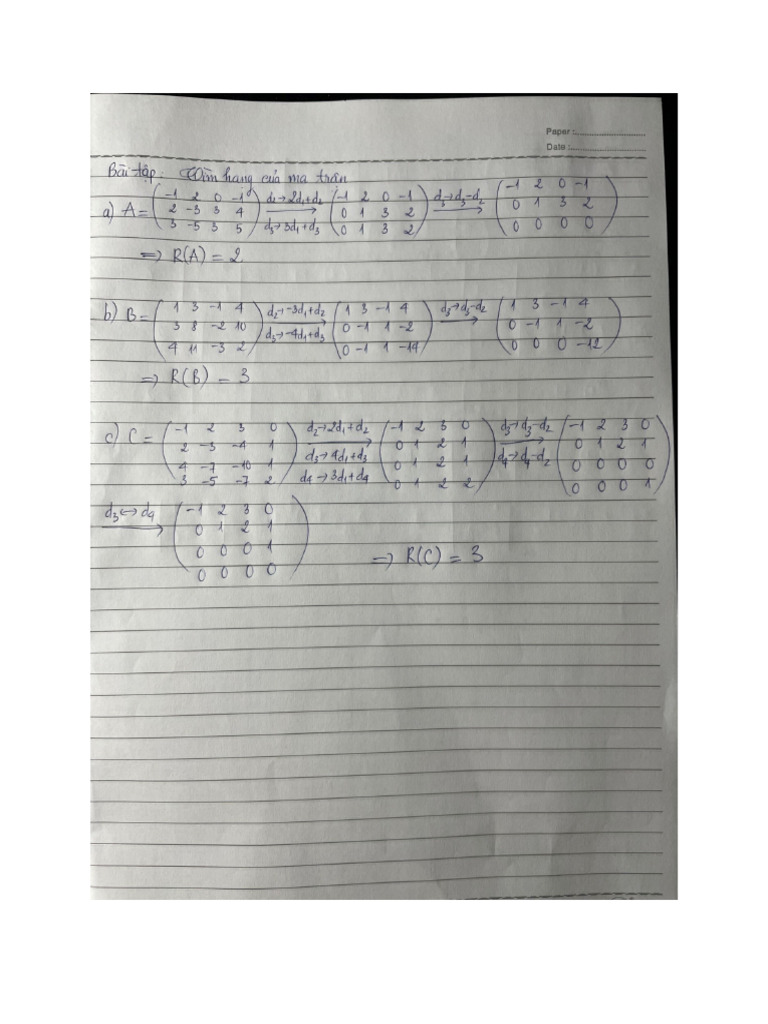 Paper :
Date :
Bài tập: Tìm hạng của ma trận
a) A = (-1 2 0 -1; 2 -3 3 4; 3 -5 3 5) d2→2d1+d2 d3→3d1+d3 → (-1 2 0 -1; 0 1 3 2; 0 1 3 2) d3→d3-d2 → (-1 2 0 -1; 0 1 3 2; 0 0 0 0)
=> R(A) = 2
b) B = (1 3 -1 4; 3 8 -2 10; 4 11 -3 2) d2→-3d1+d2 d3→-4d1+d3 → (1 3 -1 4; 0 -1 1 -2; 0 -1 1 -14) d3→d3-d2 → (1 3 -1 4; 0 -1 1 -2; 0 0 0 -12)
=> R(B) = 3
c) C = (-1 2 3 0; 2 -3 -4 1; 4 -7 -10 1; 3 -5 -7 2) d2→2d1+d2 d3→4d1+d3 d4→3d1+d4 → (-1 2 3 0; 0 1 2 1; 0 1 2 1; 0 1 2 2) d3→d3-d2 d4→d4-d2 → (-1 2 3 0; 0 1 2 1; 0 0 0 0; 0 0 0 1)
d3↔d4 → (-1 2 3 0; 0 1 2 1; 0 0 0 1; 0 0 0 0)
=> R(C) = 3